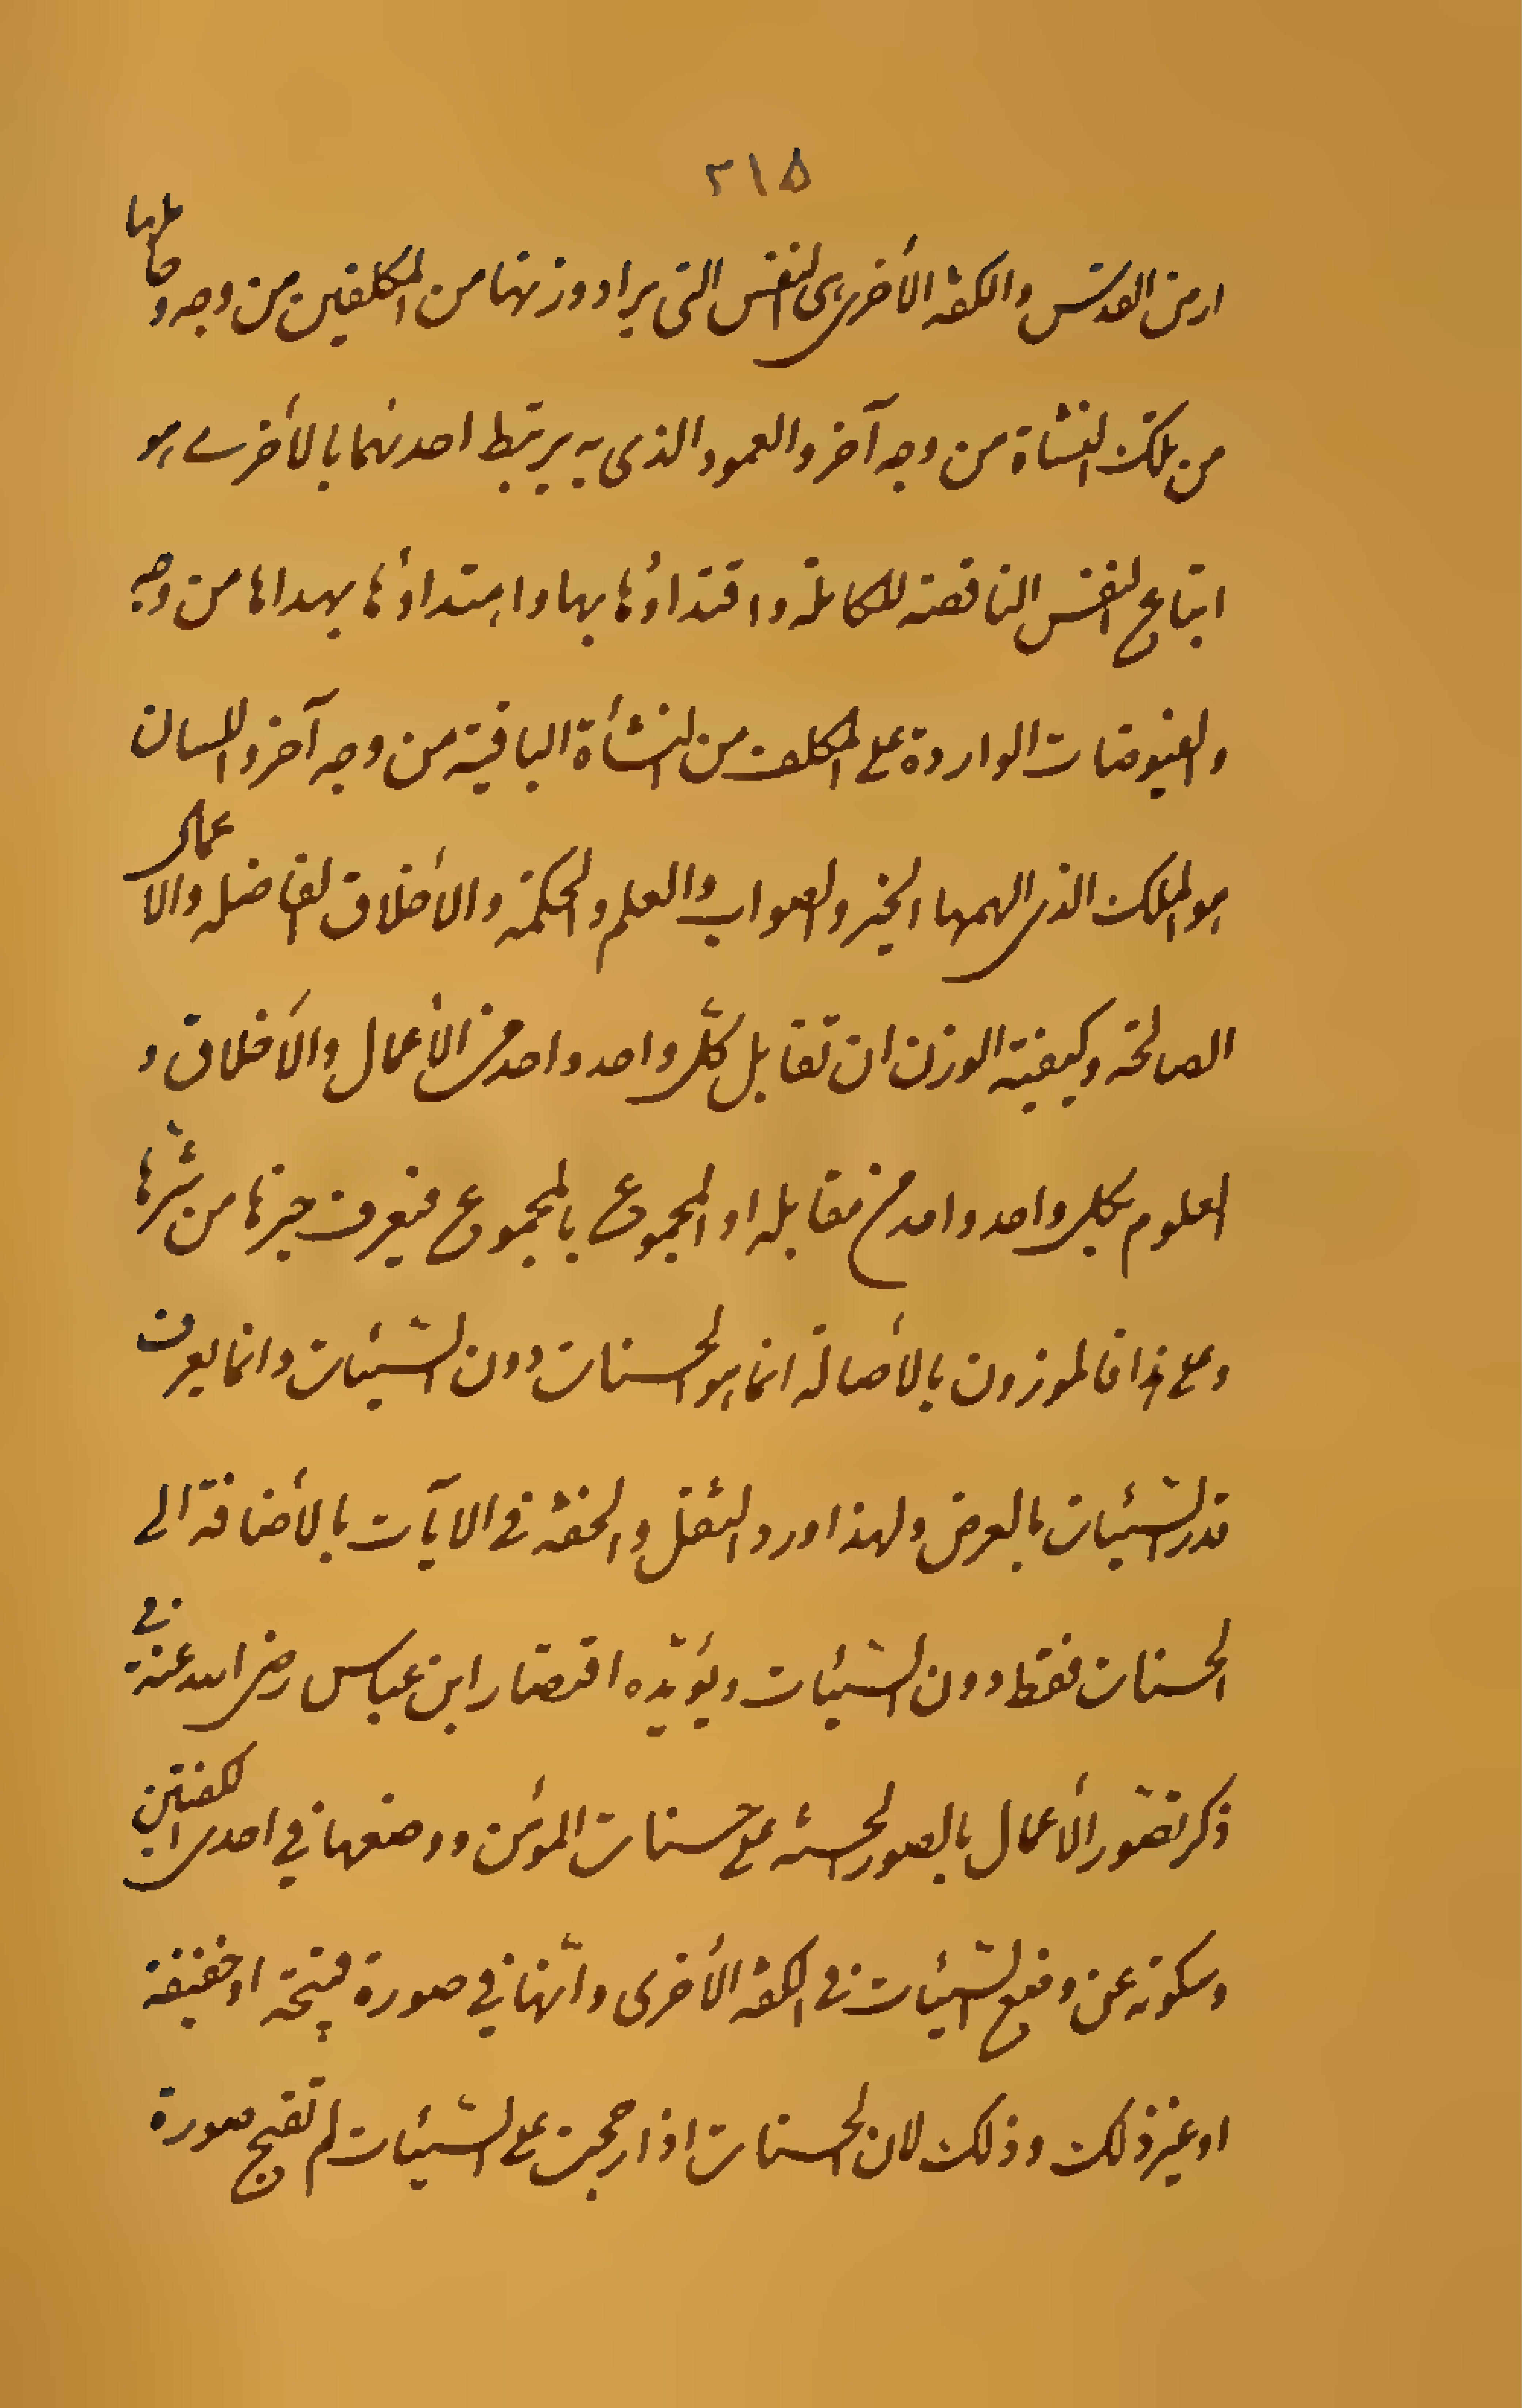 ٢١٥
ارض القدس والكفة الأخرى هى النفس التى يراد وزنها من المكلفين من وجه وما لها
من تلك النشاة من وجه آخر والعمود الذى به يرتبط احدىهما بالأخرى هو
اتباع النفس الناقصة للكاملة واقتداؤها بها واهتداؤها بهداها من وجه
والفيوضات الواردة على المكلف من النشأة الباقية من وجه آخر واللسان
هو الملك الذى الهمها الخير والصواب والعلم والحكمة والأخلاق الفاضلة والاعمال
الصالحة وكيفية الوزن ان تقابل كلّ واحد واحد من الأعمال والأخلاق و
العلوم بكل واحد واحد من مقابله او المجموع بالمجموع فيعرف خيرها من شرّها
وعلى هذا فالموزون بالأصالة انما هو الحسنات دون السّيئات وانما يعرف
قدر السّيئات بالعرض ولهذا ورد الثقل والخفة فى الآيات بالأضافة الى
الحسنات فقط دون السّيئات ويؤيّده اقتصار ابن عباس رضى الله عنه فى
ذكر تصّور الأعمال بالصور الحسنة على حسنات المؤمن ووضعها فى احدى الكفتين
وسكوته عن وضع السّيئات فى الكفة الأخرى وانّها فى صورة قبيحة او خفيفة
او غير ذلك وذلك لان الحسنات اذا رجحت على السّيئات لم تقبح صورة